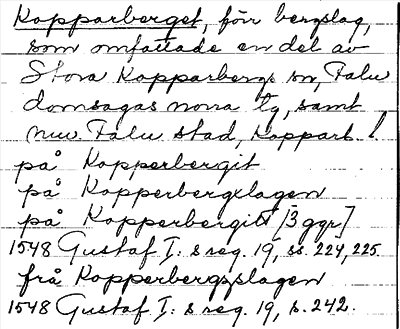 Kopparberget, förr bergslag,
som omfattade en del av
Stora Kopparbergs sn, Falu
domsagas norra tg, samt
nuv. Falu stad, Kopparb. l.
på Kopperbergit
på Kopperbergxlagen
på Kopperbergitt [3 ggr]
1548 Gustaf I:s reg. 19, ss. 224, 225.
frå Kopperbergsslagen
1548 Gustaf I:s reg. 19, s. 242.